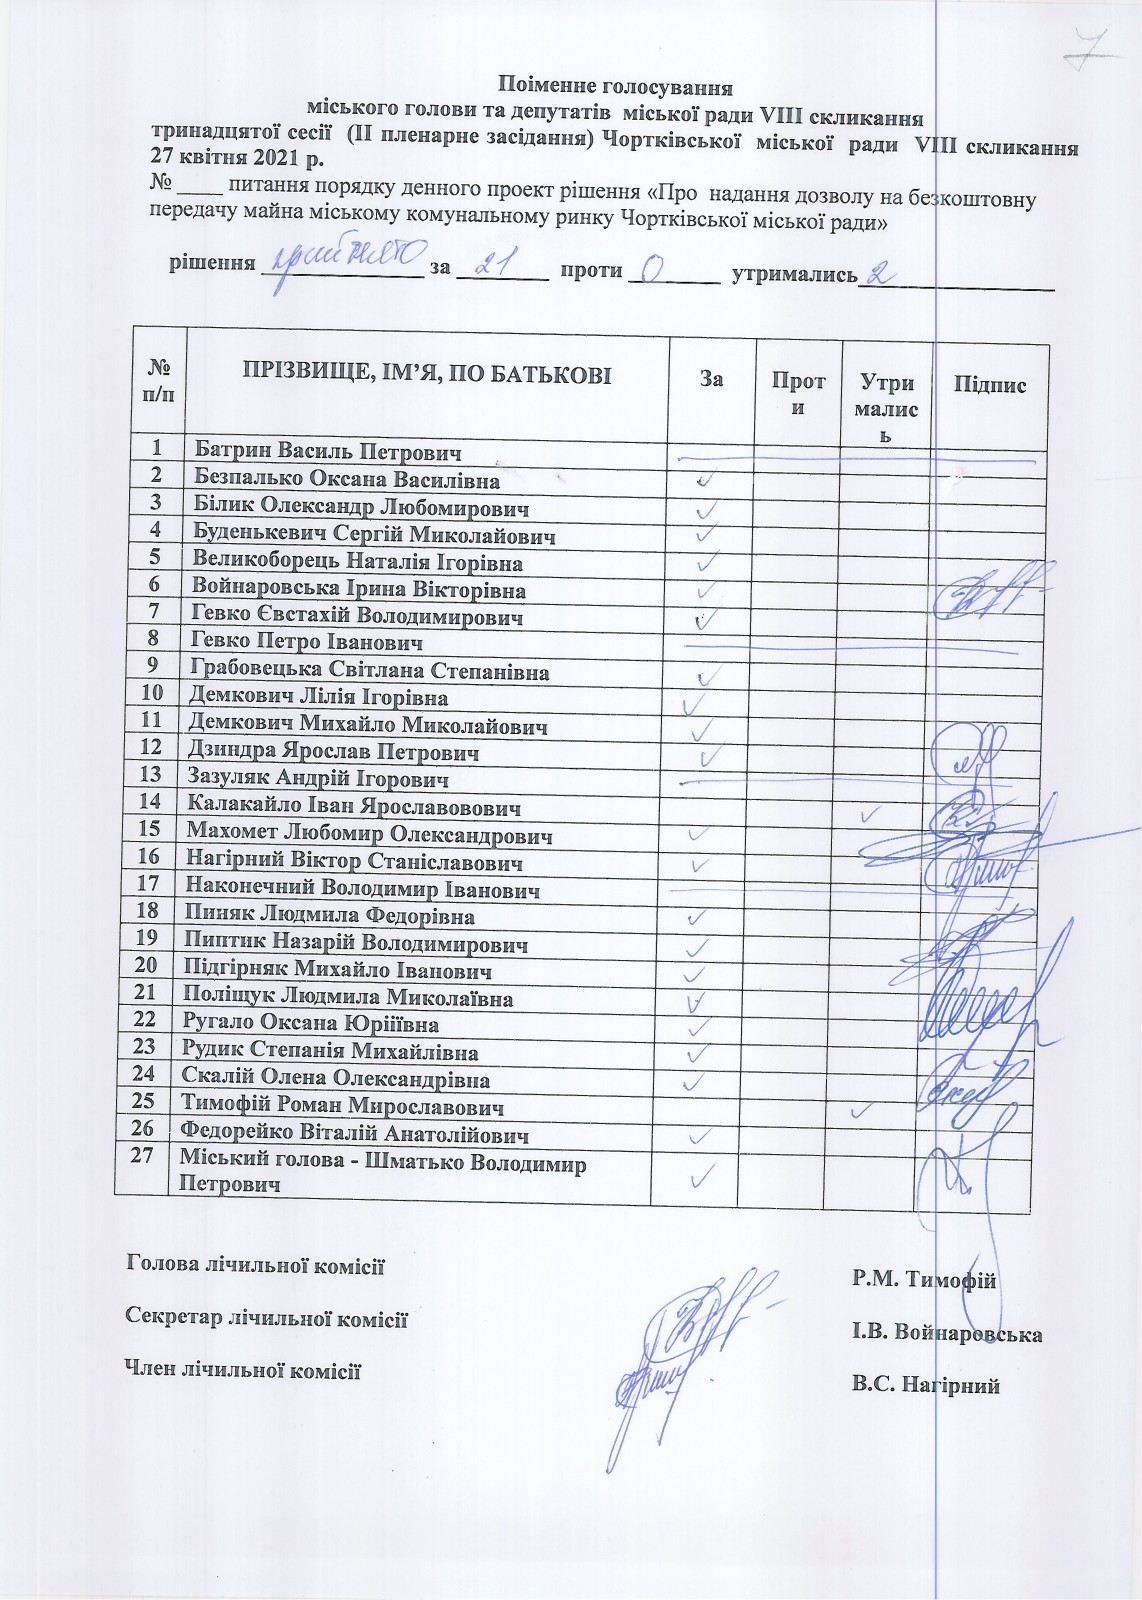 7
Поіменне голосування
міського голови та депутатів міської ради VIII скликання
тринадцятої сесії (ІІ пленарне засідання) Чортківської міської ради VIII скликання
27 квітня 2021 р.
№ ____ питання порядку денного проект рішення «Про надання дозволу на безкоштовну
передачу майна міському комунальному ринку Чортківської міської ради»
рішення прийнято за 21 проти 0 утримались 2
№ п/п ПРІЗВИЩЕ, ІМ’Я, ПО БАТЬКОВІ За Проти Утрималиcь Підпис
1 Батрин Василь Петрович
2 Безпалько Оксана Василівна ✓
3 Білик Олександр Любомирович ✓
4 Буденькевич Сергій Миколайович ✓
5 Великоборець Наталія Ігорівна ✓
6 Войнаровська Ірина Вікторівна ✓
7 Гевко Євстахій Володимирович ✓
8 Гевко Петро Іванович
9 Грабовецька Світлана Степанівна ✓
10 Демкович Лілія Ігорівна ✓
11 Демкович Михайло Миколайович ✓
12 Дзиндра Ярослав Петрович ✓
13 Зазуляк Андрій Ігорович
14 Калакайло Іван Ярославовович ✓
15 Махомет Любомир Олександрович ✓
16 Нагірний Віктор Станіславович ✓
17 Наконечний Володимир Іванович
18 Пиняк Людмила Федорівна ✓
19 Пиптик Назарій Володимирович ✓
20 Підгірняк Михайло Іванович ✓
21 Поліщук Людмила Миколаївна ✓
22 Ругало Оксана Юріїївна ✓
23 Рудик Степанія Михайлівна ✓
24 Скалій Олена Олександрівна ✓
25 Тимофій Роман Мирославович ✓
26 Федорейко Віталій Анатолійович ✓
27 Міський голова - Шматько Володимир
Петрович ✓
Голова лічильної комісії Р.М. Тимофій
Секретар лічильної комісії І.В. Войнаровська
Член лічильної комісії В.С. Нагірний